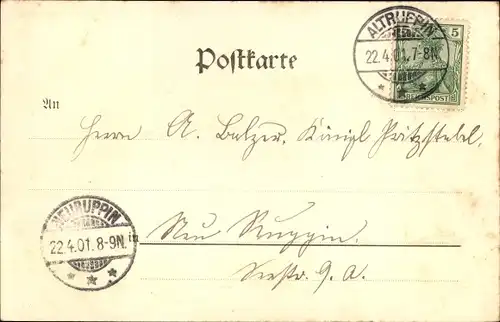 Postkarte
ALTRUPPIN
22.4.01.7-8N.
5
REICHSPOST
An
Herrn A. Balzer, Königl
NEURUPPIN
22.4.01.8-9N.
in Neu Ruppin.
Seestr. 9. a.